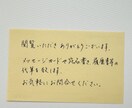 閲覧いただきありがとうございます。
メッセージカードや宛名書き、履歴書の
代筆を致します。
お気軽にお問合せください。